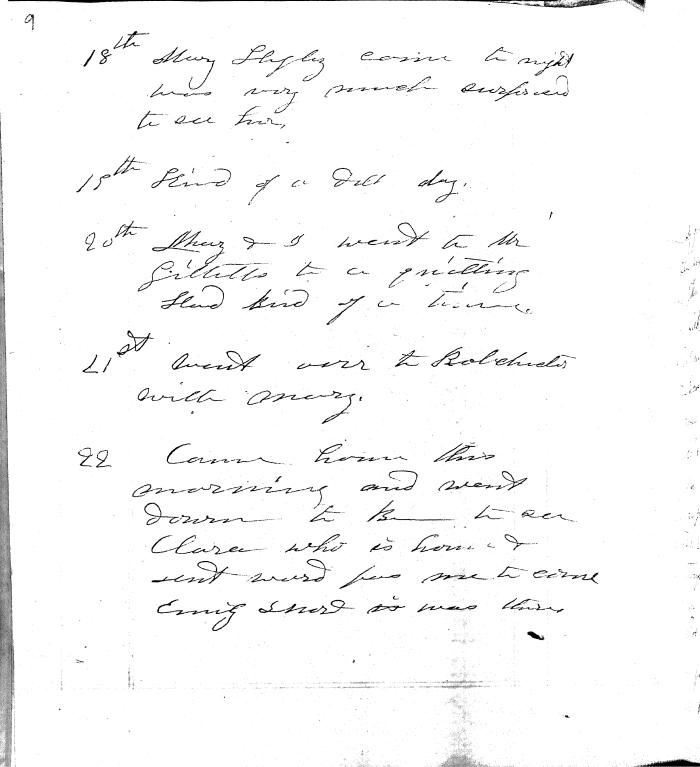 9
18th Mary come to night
was very much surprised
to see her,
19th kind of a dull day.
20th Mary & I went to Mr
Gilletts to a quilting
kind of a time.
21st went over to
with Mary.
22 Came home this
morning and went
down to B— to see
Clara who is home &
sent word for me to come
Emily is was there